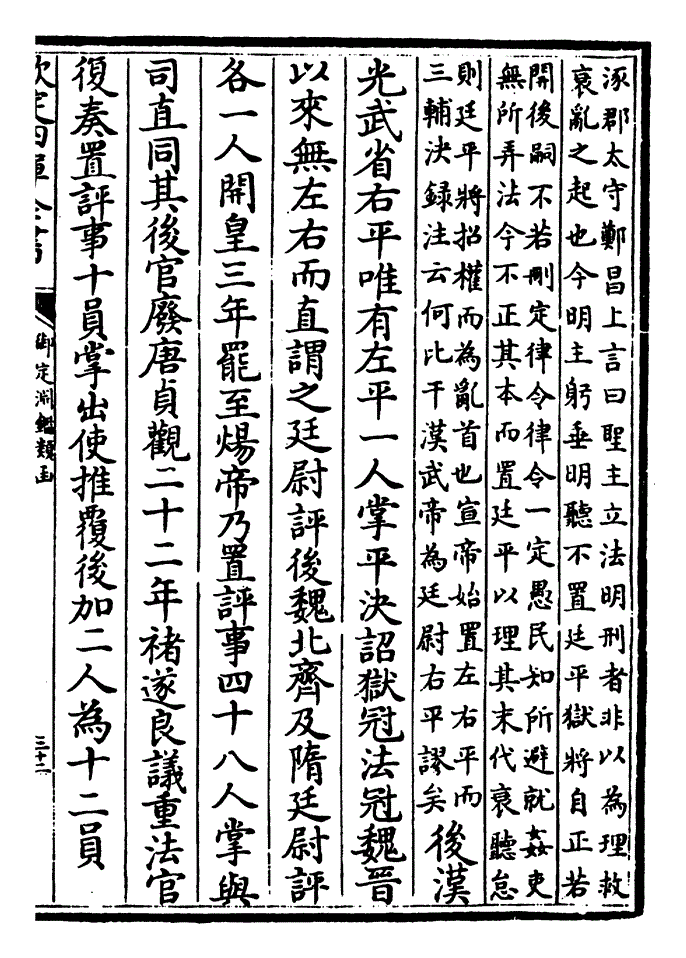 涿郡太守鄭昌上言曰聖主立法明刑者非以為理救
衰亂之起也今明主躬垂明聽不置廷平獄將自正若
開後嗣不若刪定律令律令一定愚民知所避就姦吏
無所弄法今不正其本而置廷平以理其末代衰聽怠
則廷平將招權而為亂首也宣帝始置左右平而
三輔決録注云何比干漢武帝為廷尉右平謬矣
後漢
光武省右平唯有左平一人掌平決詔獄冠法冠魏晉
以來無左右而直謂之廷尉評後魏北齊及隋廷尉評
各一人開皇三年罷至煬帝乃置評事四十八人掌與
司直同其後官廢唐貞觀二十二年褚遂良議重法官
復奏置評事十員掌出使推覆後加二人為十二員
欽定四庫全書
御定淵鑑類函
三十二